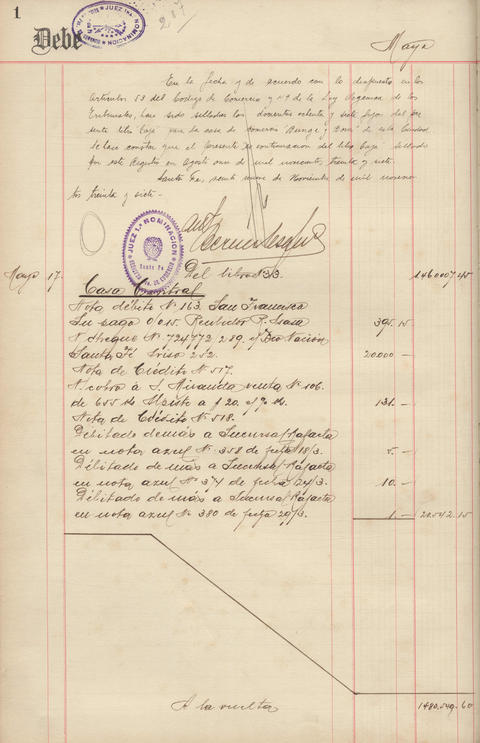 1
287
JUEZ 1ª NOMINACION
Debe
Mayo
En la fecha y de acuerdo con lo dispuesto en los
Artículos 53 del Código de Comercio y nº de la Ley Orgánica de los
Tribunales, han sido sellados los doscientos ochenta y siete fojas del pre
sente libro Caja para la casa de comercio Bunge y Born de esta Ciudad
Se hace constar que el presente es continuación del libro Caja sellado
por este Registro en Agosto once de mil novecientos treinta y siete.
Santa Fe, veinte nueve de Noviembre de mil novecien
tos treinta y siete.-
JUEZ 1ª NOMINACION
Santa Fe
REGISTRO P. DE COMERCIO
Mayo 17 Del libro 133 1460007 45
Casa Central
Nota débito Nº 163. San Francisco
Su pago o/ Recibidor R. 395.15
N. cheque Nº 724772/289 c/ Bco Nación
Santa Fé 252. 20.000 —
Nota de Crédito Nº 517.
N. cobro á S. Miranda venta Nº 106.
de 655 ks a $ 20. 131. —
Nota de Crédito Nº 518.
Debitado demás a Sucursal Rafaela
en nota azul Nº 358 de fecha 18/3. 5. —
Debitado de más a Sucursal Rafaela
en nota azul Nº 374 de fecha 24/3. 10. —
Debitado de más a Sucursal Rafaela
en nota azul Nº 380 de fecha 29/3. 1. — 20.542.15
A la vuelta 1480.549.60